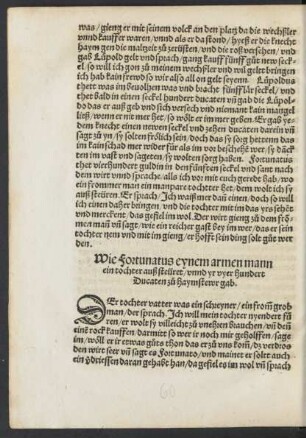 was / gieng er mit seinem volck an den platz da die wechsßler
vnnd kauffer waren / vnnd als er da stond / hyeß er die knecht
haym gen die malzeit zu zerüsten / vnd die roß versehen / vnd
gab Lüpold gelt vnd sprach / gang kauff fünff gůt new seck-
el / so will ich gon zů meinem wechßler vnd wil gelt bringen
ich hab kain frewd so wir also all on gelt seyenn. Lüpoldus
thett was im beuolhen was vnd bracht fünff lär seckel / vnd
thet bald in einen seckel hundert ducaten vñ gab die Lüpol-
do das er auß geb vnd sich versech vnd niemant kain mangel
ließ / wenn er nit mer het / so wölt er im mer geben. Er gab ye-
dem knecht einen newen seckel vnd zehen ducaten darein vñ
sagt zů yn / sy solten frölich sein / doch das sy sorg hettenn das
im kain schad mer wider für als im vor beschehẽ wer / sy däck-
ten im vast vnd sagten / sy wolten sorg haben. Fortunatus
thet vierhundert guldin in den fünfften seckel vnd sant nach
dem wirt vnnd sprach: alls ich vor mit euch geredt hab / wo
ein frommer man ein manpare tochter het / dem wolt ich sy
auß steüren. Er sprach: Ich waiß mer dañ einen. doch so will
ich einen daher bringen. vnd die tochter mit im das yrs sehẽt
vnd merckent. das gefiel im wol. Der wirt gieng zů dem frõ-
men mañ vñ saget ym / wie ein reicher herr bey ym wer / das er sein
tochter nem vnd mit im gieng / er hofft sein ding solt gůt wer
den.
Wie Fortunatus eynem armen mann
ein tochter außsteüret / vnnd yr vyer hundert
Ducaten zů haymstewr gab.
DEr tochter vatter was ein schreyner / ein from̃ grob
man / der sprach. Ich will mein tochter nyendert fü
ren / er wolt sy villeicht zů vneheren brauchen / vñ deñ
eine rock kauffen damit so wer ir noch mir geholffen / sage
im / wöll er ir etwas gůts thon das er zů vns kom̃ / dz verdros
den wirt seer vñ sagt es Fortunato / vnd mainet er solte auch
ein v̈driessen daran gehabt han / da gefiel es im wol vñ sprach
60